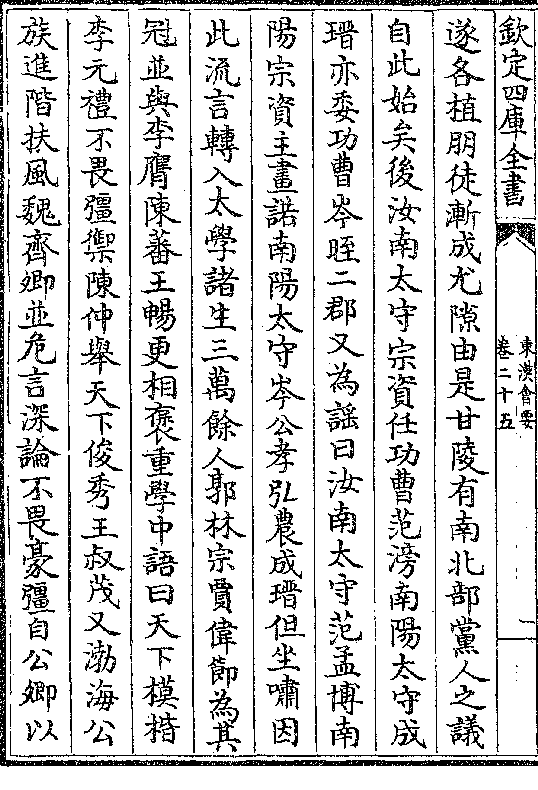 欽定四庫全書
東漢會要
卷二十五
一
遂各植朋徒漸成尤隙由是甘陵有南北部黨人之議
自此始矣後汝南太守宗資任功曹范滂南陽太守成
瑨亦委功曹岑晊二郡又為謡曰汝南太守范孟博南
陽宗資主畫諾南陽太守岑公孝弘農成瑨但坐嘯因
此流言轉入太學諸生三萬餘人郭林宗賈偉節為其
冠並與李膺陳蕃王暢更相襃重學中語曰天下模楷
李元禮不畏彊禦陳仲舉天下俊秀王叔茂又渤海公
族進階扶風魏齊卿並危言深論不畏豪彊自公卿以